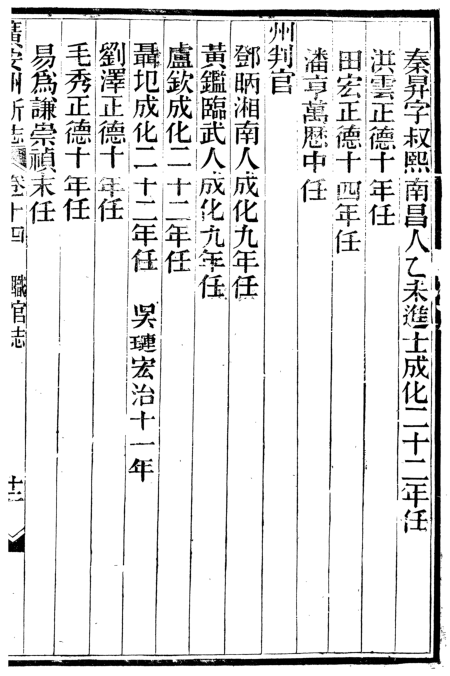 秦昇字叔熙南昌人乙未進士成化二十二年任
洪雲正德十年任
田宏正德十四年任
潘亨萬曆中任
州判官
鄧昞湘南人成化九年任
黃鑑臨武人成化九年任
盧欽成化二十二年任
聶圯成化二十二年任 吳璉宏治十一年
劉澤正德十年任
毛秀正德十年任
易爲謙崇禎末任
廣安州新志 卷十四 職官志 十二